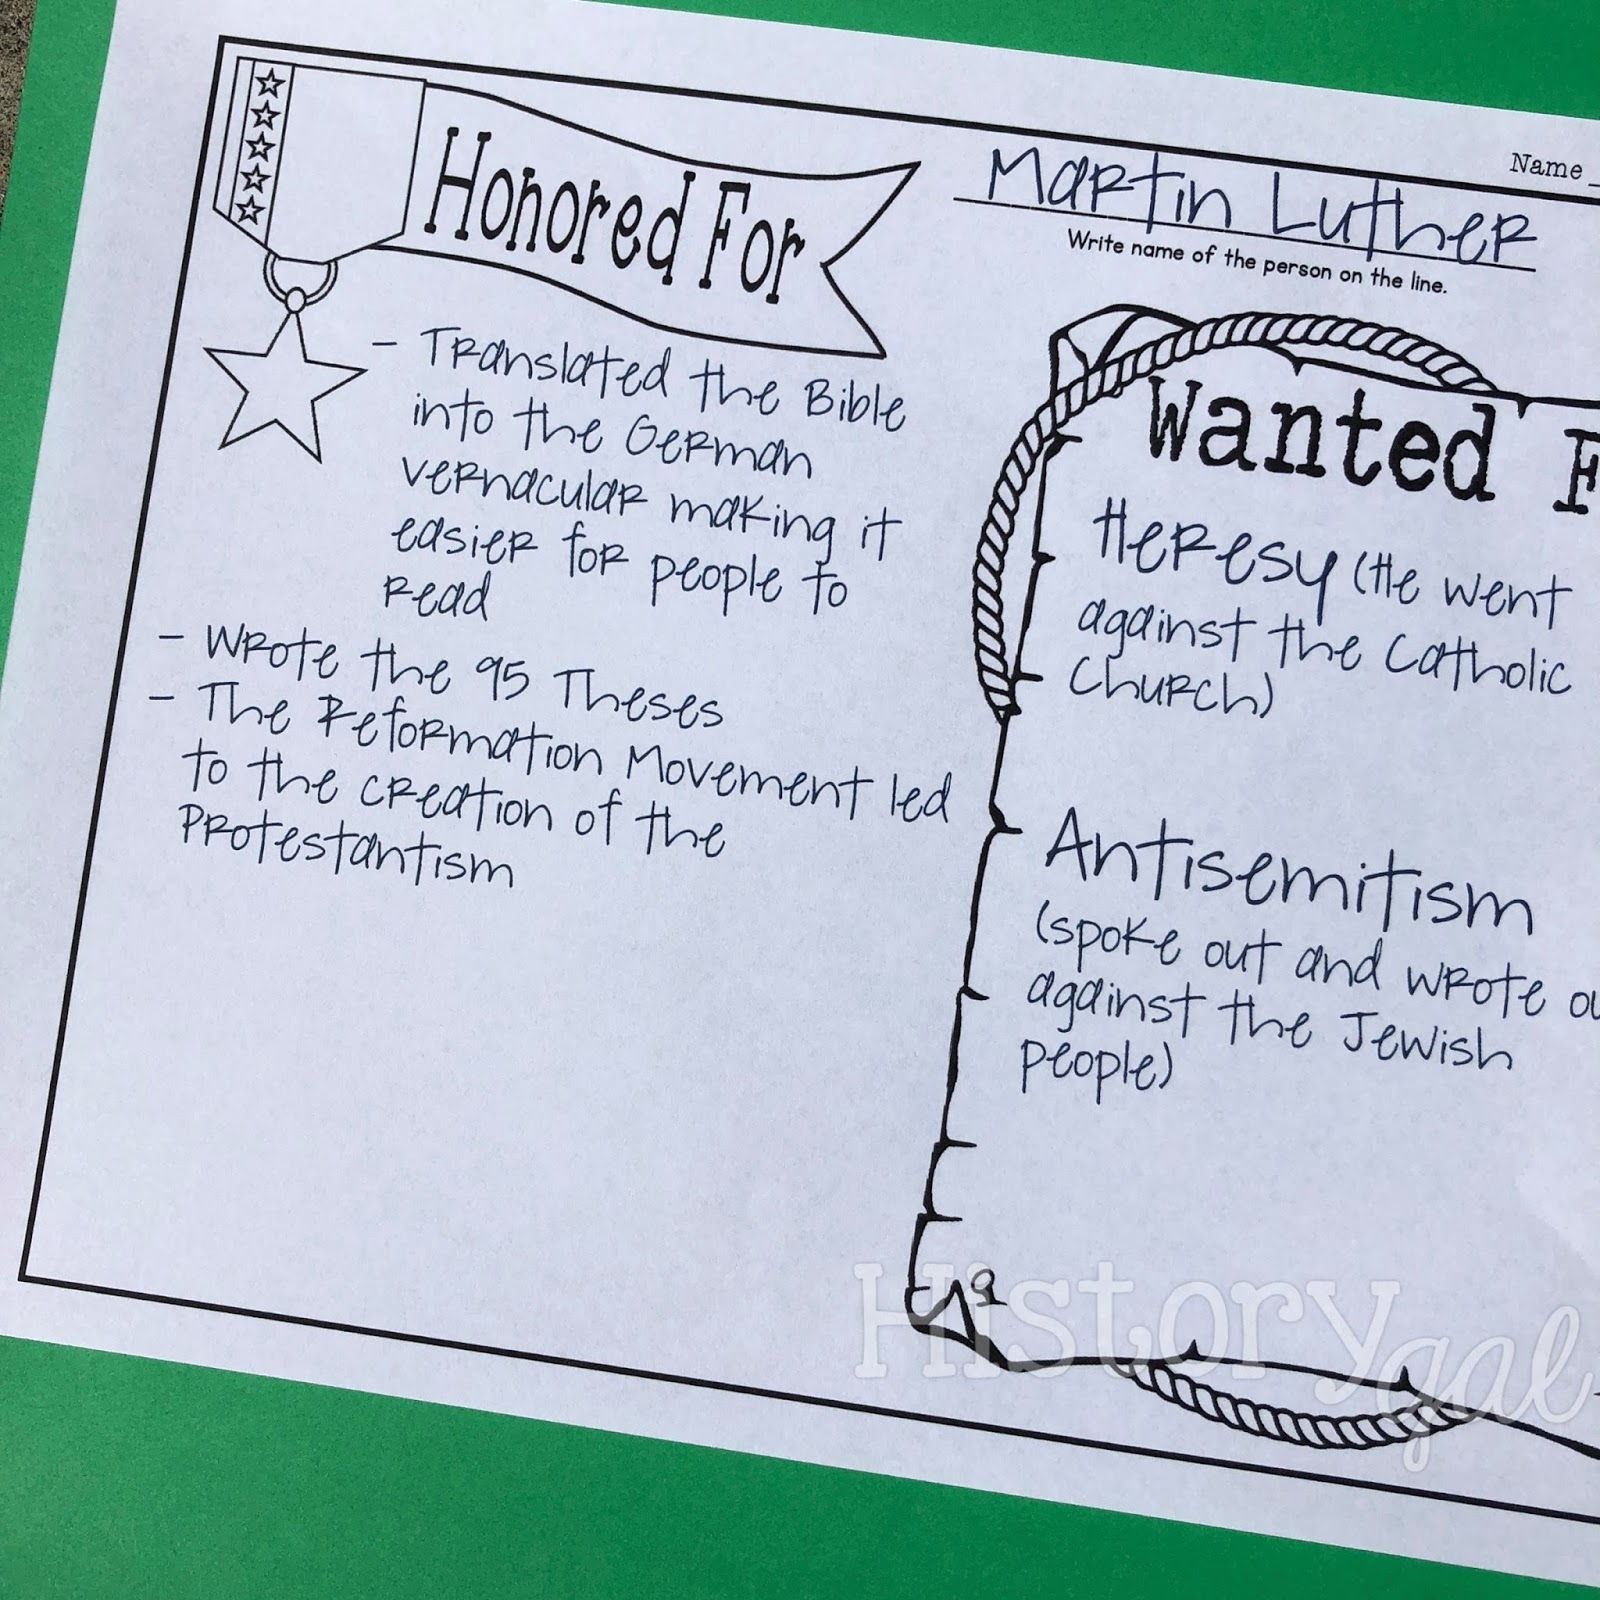 Honored For
- Translated the Bible
into the German
vernacular making it
easier for people to
read
- Wrote the 95 Theses
- The Reformation Movement led
to the creation of the
Protestantism
Name
Martin Luther
Write name of the person on the line.
Wanted F
Heresy (He went
against the Catholic
Church)
Antisemitism
(spoke out and wrote ou
against the Jewish
people)
History gal